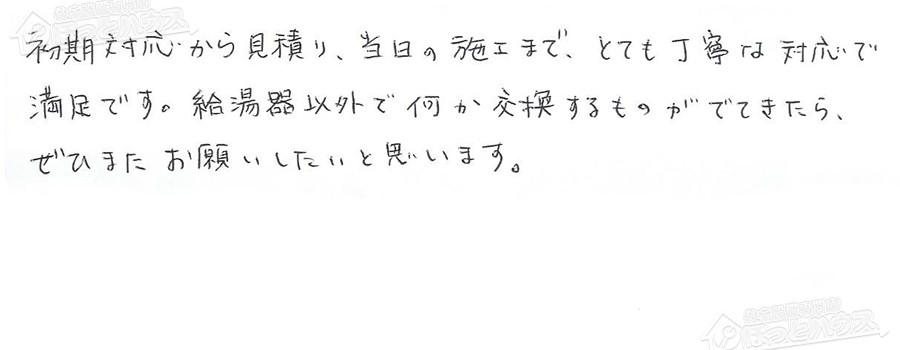 初期対応から見積り、当日の施工まで、とても丁寧な対応で
満足です。給湯器以外で何か交換するものがでてきたら、
ぜひまたお願いしたいと思います。
ほっとハウス